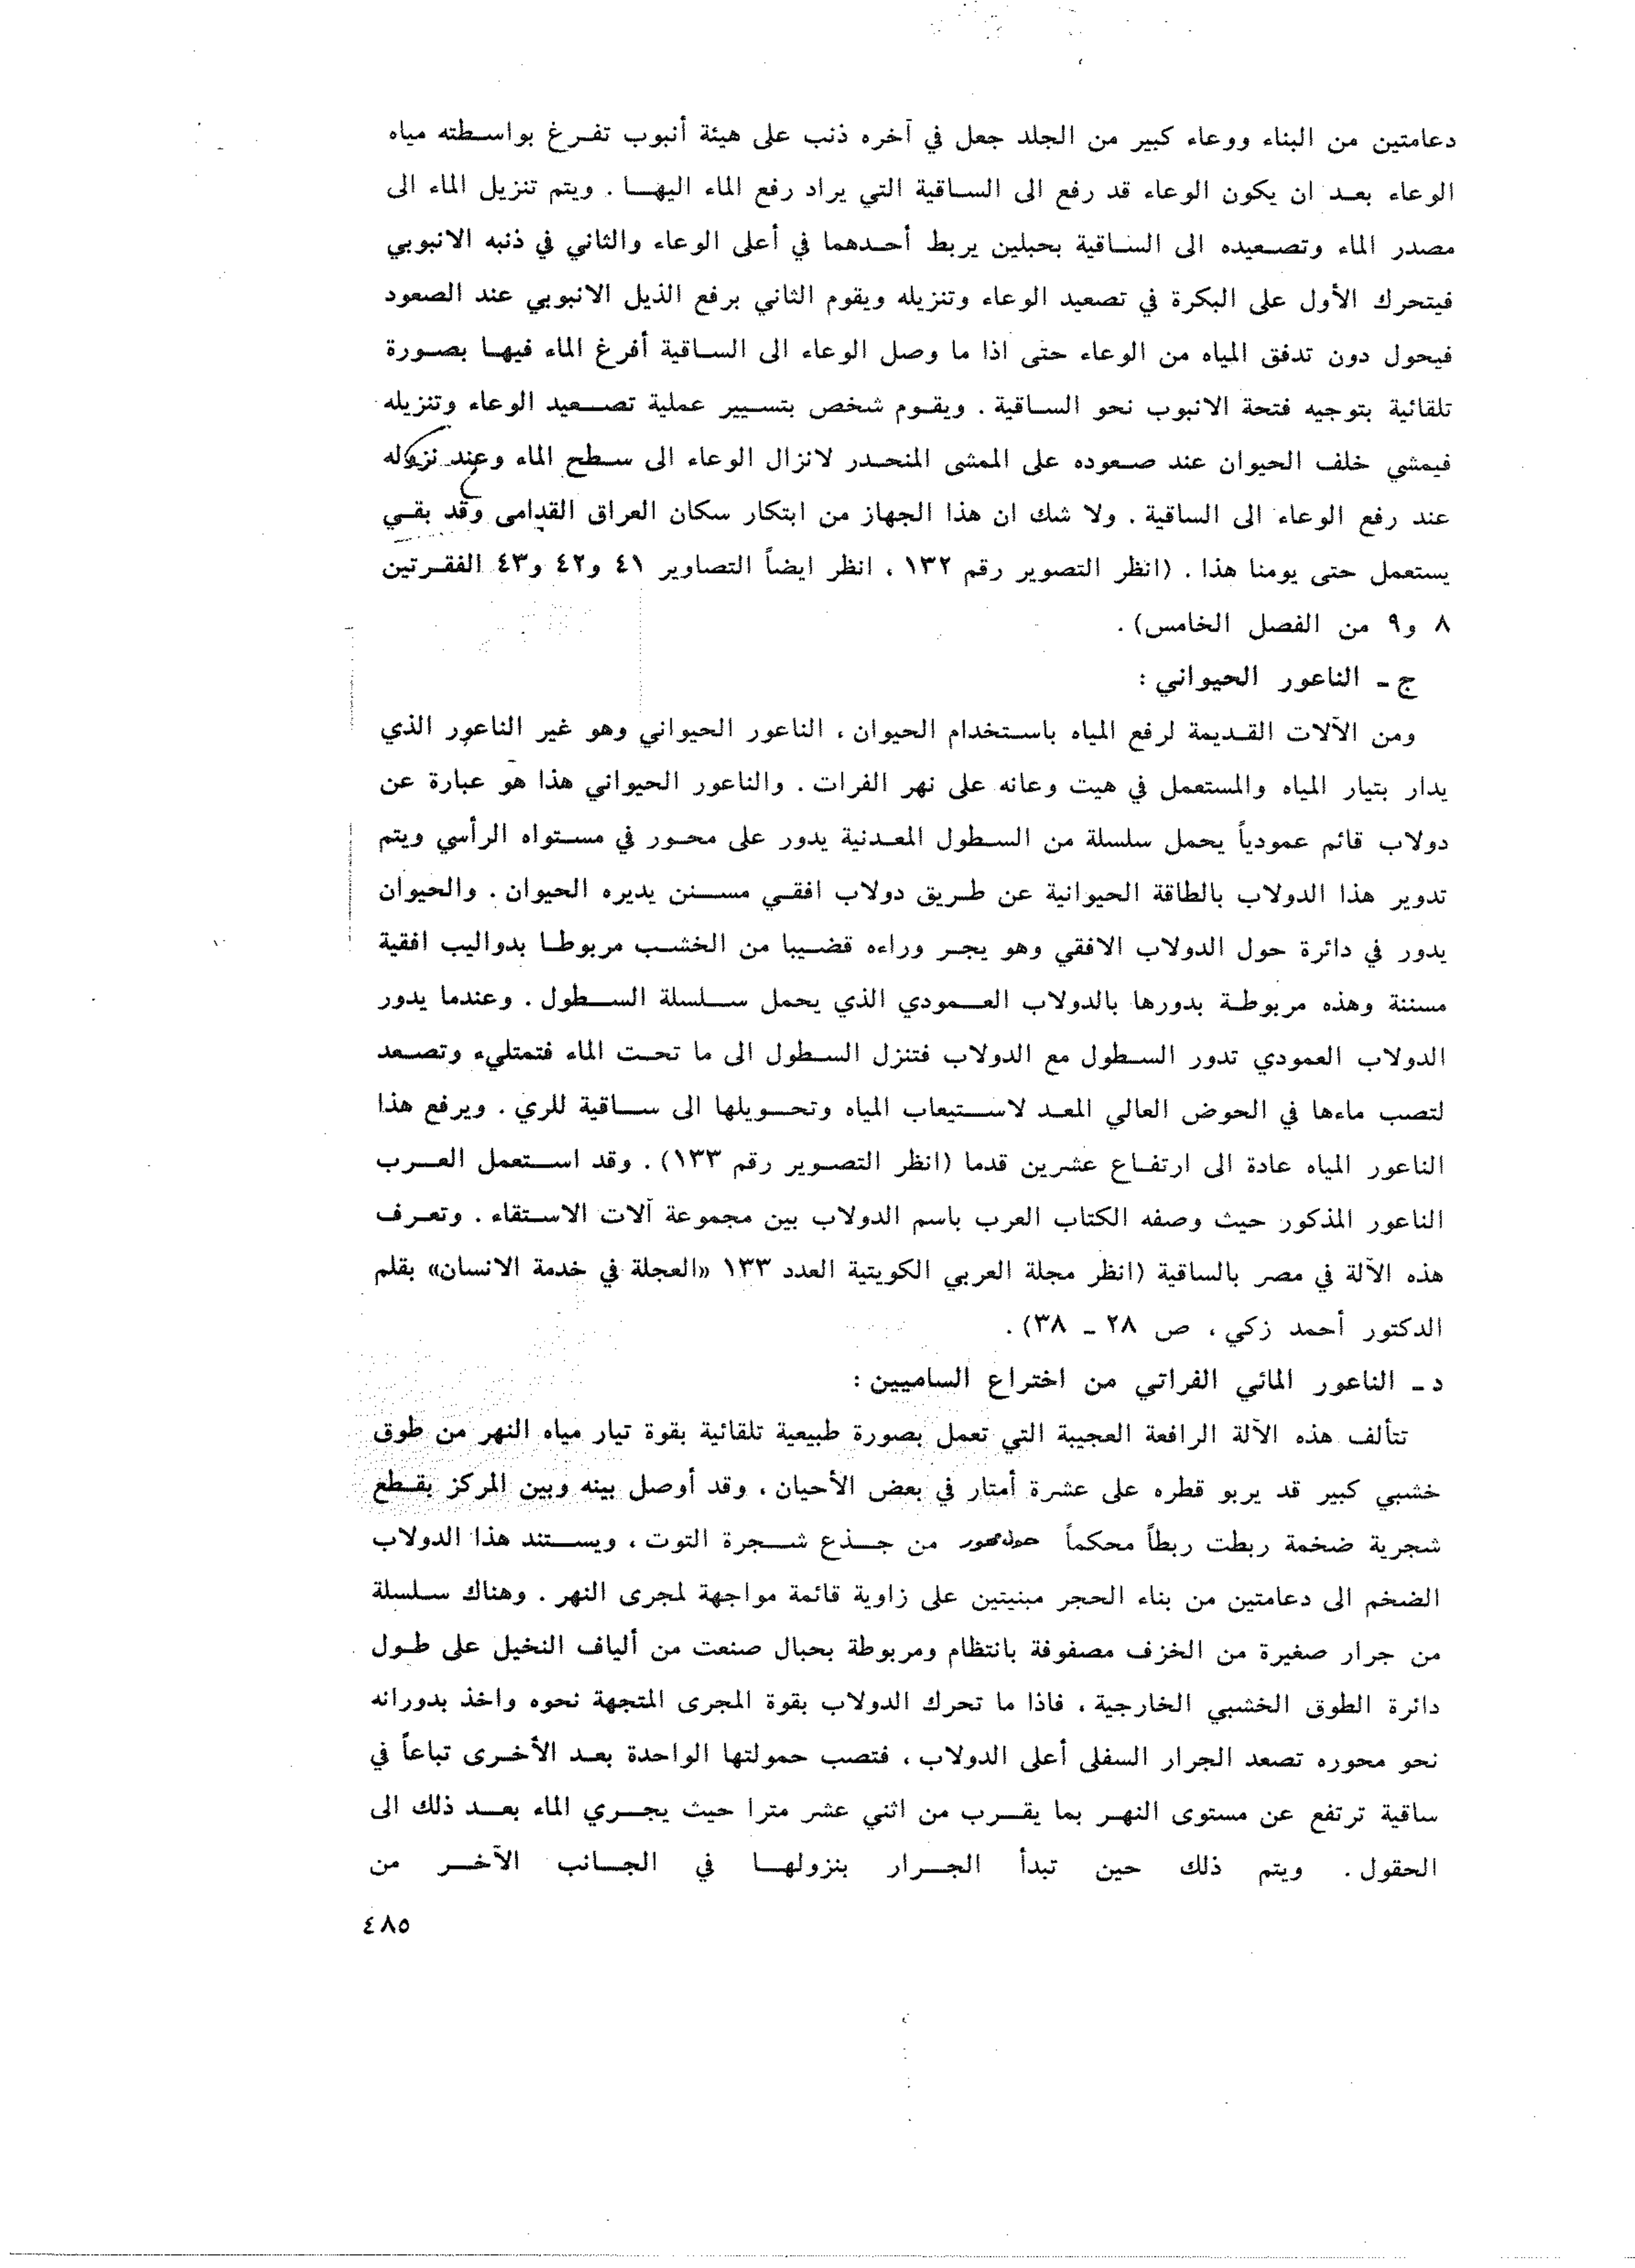 دعامتين من البناء ووعاء كبير من الجلد جعل في آخره ذنب على هيئة أنبوب تفرغ بواسطته مياه
الوعاء بعد ان يكون الوعاء قد رفع الى الساقية التي يراد رفع الماء اليها . ويتم تنزيل الماء الى
مصدر الماء وتصعيده الى الساقية بحبلين يربط أحدهما في أعلى الوعاء والثاني في ذنبه الانبوبي
فيتحرك الأول على البكرة في تصعيد الوعاء وتنزيله ويقوم الثاني برفع الذيل الانبوبي عند الصعود
فيحول دون تدفق المياه من الوعاء حتى اذا ما وصل الوعاء الى الساقية أفرغ الماء فيها بصورة
تلقائية بتوجيه فتحة الانبوب نحو الساقية . ويقوم شخص بتسيير عملية تصعيد الوعاء وتنزيله
فيمشي خلف الحيوان عند صعوده على الممشى المنحدر لانزال الوعاء الى سطح الماء وعند نزوله
عند رفع الوعاء الى الساقية . ولا شك ان هذا الجهاز من ابتكار سكان العراق القدامى وقد بقي
يستعمل حتى يومنا هذا . (انظر التصوير رقم ١٣٢ ، انظر ايضاً التصاوير ٤١ و٤٢ و٤٣ الفقرتين
٨ و٩ من الفصل الخامس) .
ج ـ الناعور الحيواني :
ومن الآلات القديمة لرفع المياه باستخدام الحيوان ، الناعور الحيواني وهو غير الناعور الذي
يدار بتيار المياه والمستعمل في هيت وعانه على نهر الفرات . والناعور الحيواني هذا هو عبارة عن
دولاب قائم عمودياً يحمل سلسلة من السطول المعدنية يدور على محور في مستواه الرأسي ويتم
تدوير هذا الدولاب بالطاقة الحيوانية عن طريق دولاب افقي مسنن يديره الحيوان . والحيوان
يدور في دائرة حول الدولاب الافقي وهو يجر وراءه قضيبا من الخشب مربوطا بدواليب افقية
مسننة وهذه مربوطة بدورها بالدولاب العمودي الذي يحمل سلسلة السطول . وعندما يدور
الدولاب العمودي تدور السطول مع الدولاب فتنزل السطول الى ما تحت الماء فتمتليء وتصعد
لتصب ماءها في الحوض العالي المعد لاستيعاب المياه وتحويلها الى ساقية للري . ويرفع هذا
الناعور المياه عادة الى ارتفاع عشرين قدما (انظر التصوير رقم ١٣٣) . وقد استعمل العرب
الناعور المذكور حيث وصفه الكتاب العرب باسم الدولاب بين مجموعة آلات الاستقاء . وتعرف
هذه الآلة في مصر بالساقية (انظر مجلة العربي الكويتية العدد ١٣٣ «العجلة في خدمة الانسان» بقلم
الدكتور أحمد زكي ، ص ٢٨ ـ ٣٨) .
د ـ الناعور المائي الفراتي من اختراع الساميين :
تتألف هذه الآلة الرافعة العجيبة التي تعمل بصورة طبيعية تلقائية بقوة تيار مياه النهر من طوق
خشبي كبير قد يربو قطره على عشرة أمتار في بعض الأحيان ، وقد أوصل بينه وبين المركز بقطع
شجرية ضخمة ربطت ربطاً محكماً حول محور من جذع شجرة التوت ، ويستند هذا الدولاب
الضخم الى دعامتين من بناء الحجر مبنيتين على زاوية قائمة مواجهة لمجرى النهر . وهناك سلسلة
من جرار صغيرة من الخزف مصفوفة بانتظام ومربوطة بحبال صنعت من ألياف النخيل على طول
دائرة الطوق الخشبي الخارجية ، فاذا ما تحرك الدولاب بقوة المجرى المتجهة نحوه واخذ بدورانه
نحو محوره تصعد الجرار السفلى أعلى الدولاب ، فتصب حمولتها الواحدة بعد الأخرى تباعاً في
ساقية ترتفع عن مستوى النهر بما يقرب من اثني عشر مترا حيث يجري الماء بعد ذلك الى
الحقول . ويتم ذلك حين تبدأ الجرار بنزولها في الجانب الآخر من
٤٨٥